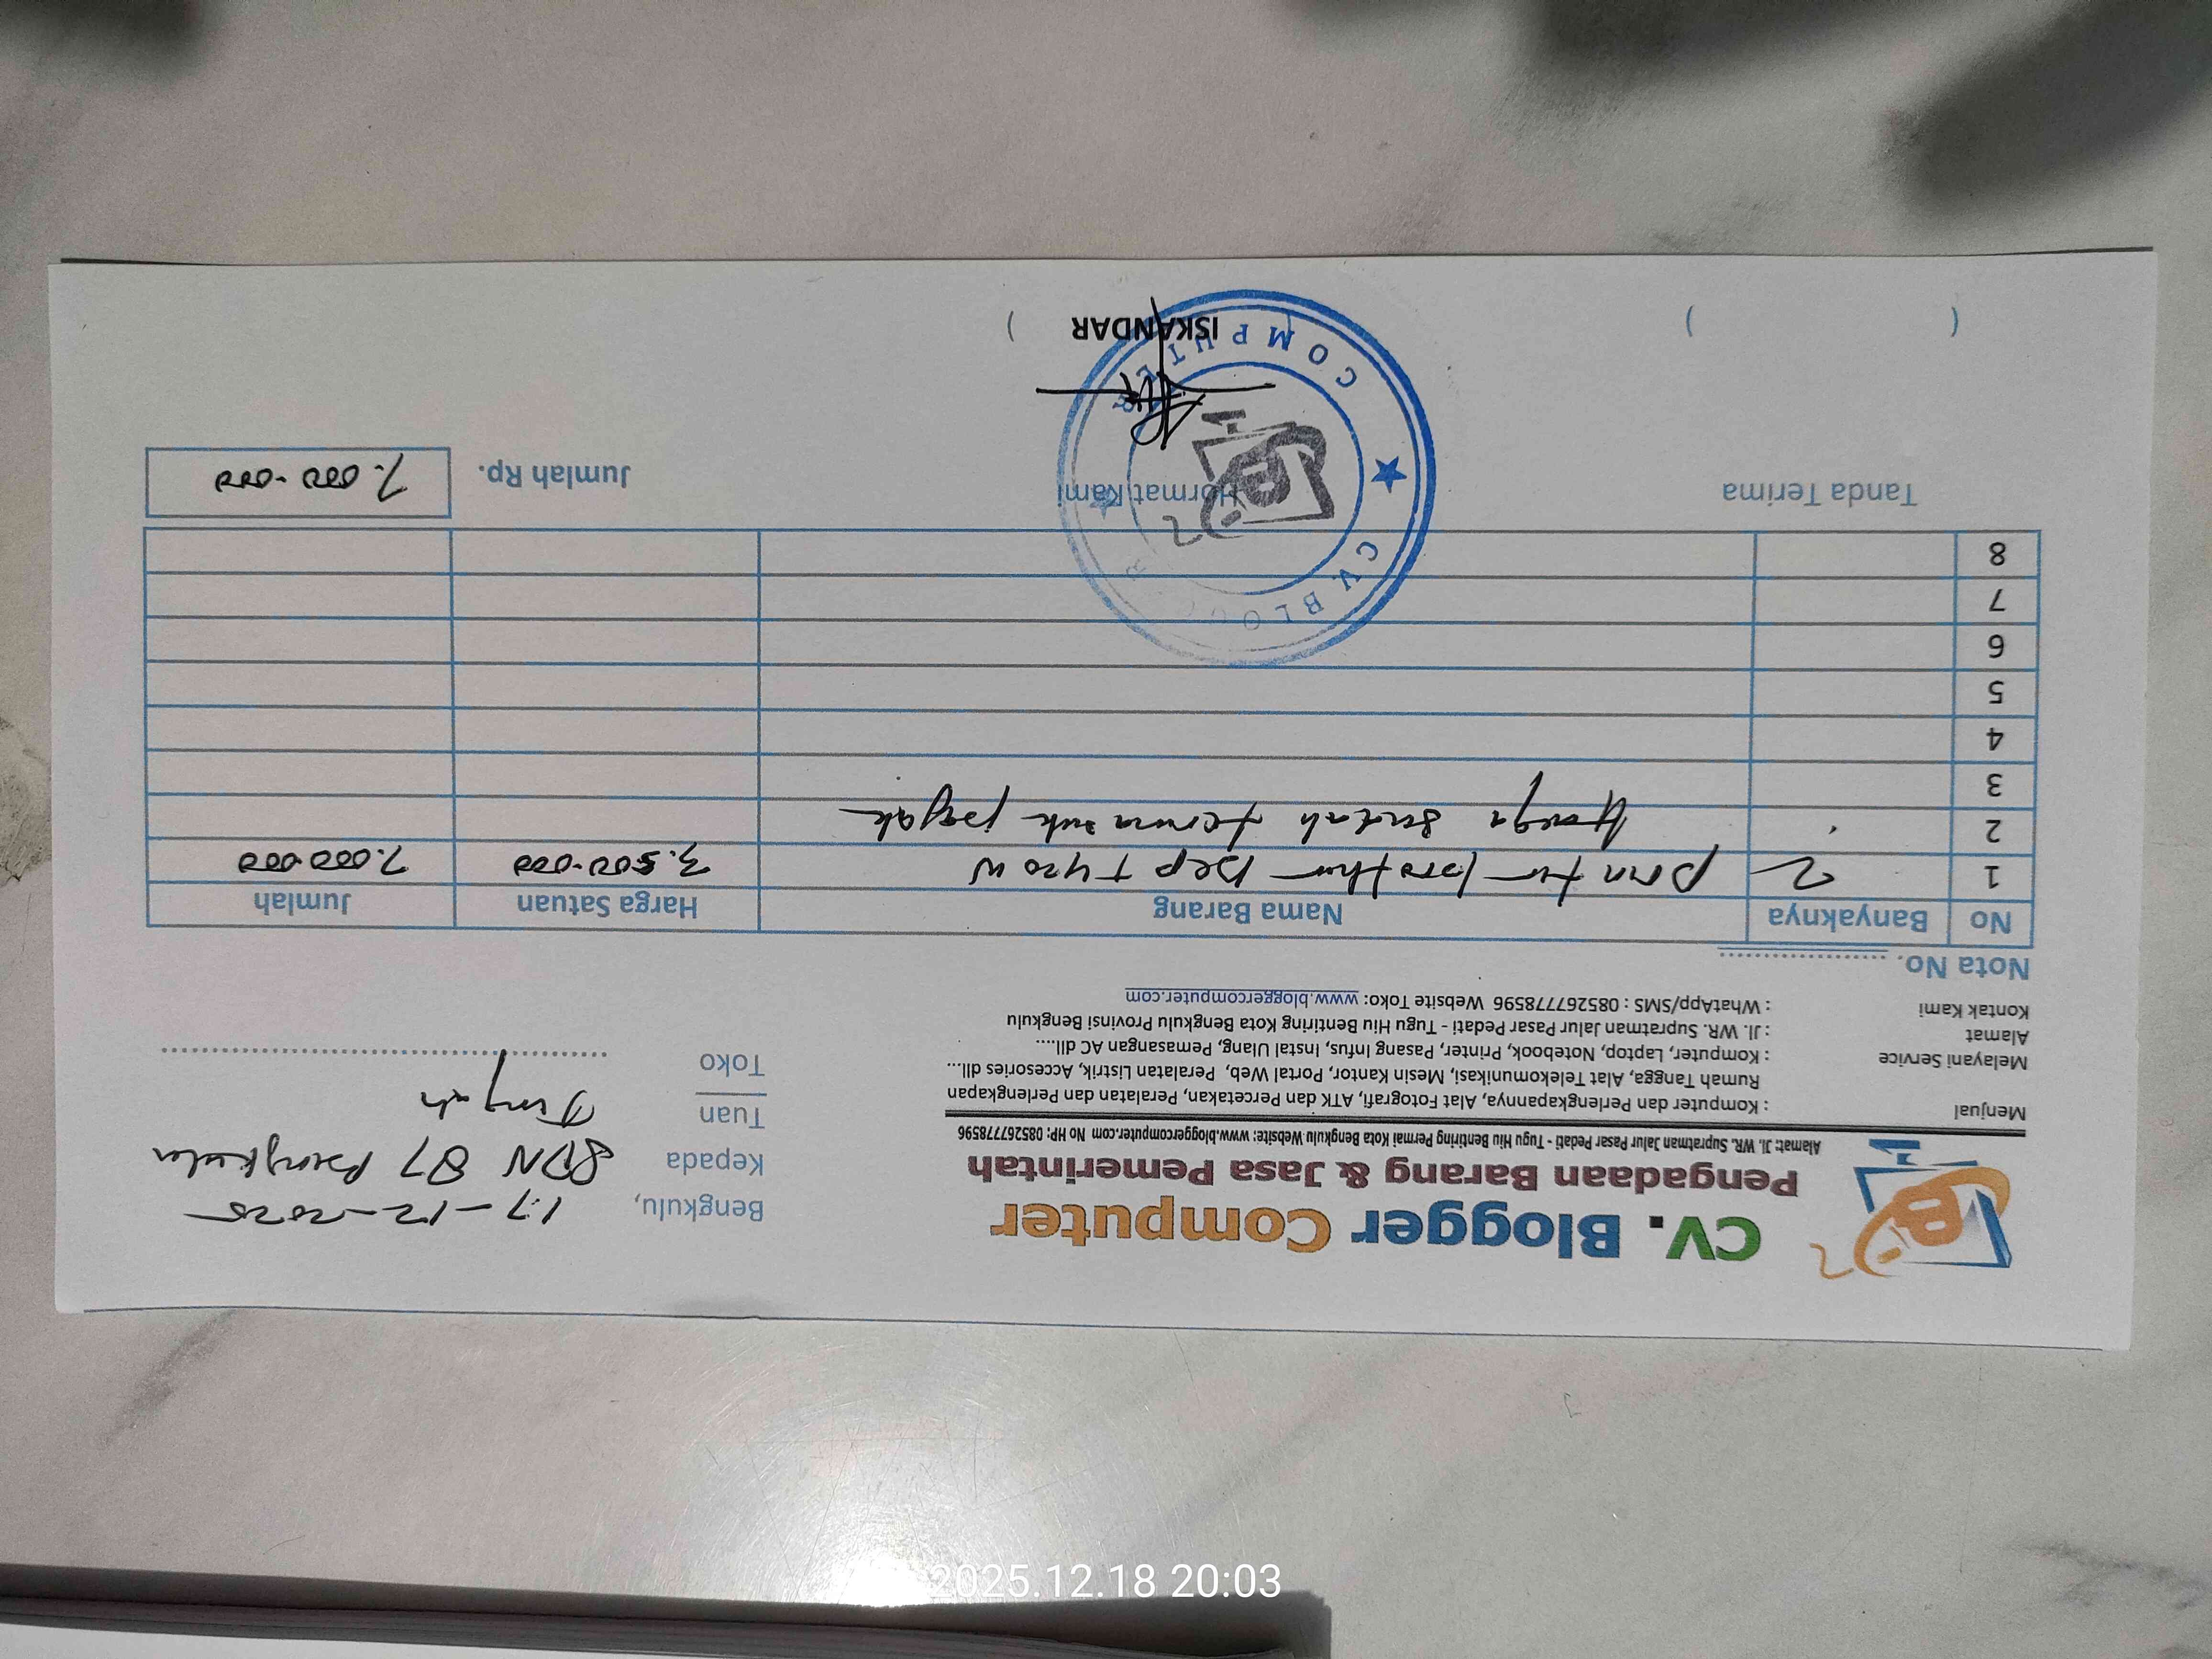 CV. Blogger Computer
Pengadaan Barang & Jasa Pemerintah
Alamat: Jl. WR. Supratman Jalur Pasar Pedati - Tugu Hiu Bentiring Permai Kota Bengkulu Website: www.bloggercomputer.com No HP: 085267778596
Menjual : Komputer dan Perlengkapannya, Alat Fotografi, ATK dan Percetakan, Peralatan dan Perlengkapan
Rumah Tangga, Alat Telekomunikasi, Mesin Kantor, Portal Web, Peralatan Listrik, Accesories dll....
Melayani Service : Komputer, Laptop, Notebook, Printer, Pasang Infus, Instal Ulang, Pemasangan AC dll....
Alamat : Jl. WR. Supratman Jalur Pasar Pedati - Tugu Hiu Bentiring Kota Bengkulu Provinsi Bengkulu
Kontak Kami : WhatApp/SMS : 085267778596 Website Toko: www.bloggercomputer.com
Bengkulu, 17-12-2025
Kepada SDN 87 Bengkulu
Tuan Tengah
Toko
Nota No.
No Banyaknya Nama Barang Harga Satuan Jumlah
1 2 printer brother Dcp T420W 3.500.000 7.000.000
2 Harga sudah termasuk pajak
3
4
5
6
7
8
Tanda Terima Hormat Kami Jumlah Rp. 7.000.000
CV. BLOGGER COMPUTER
( ) ISKANDAR )
2025.12.18 20:03